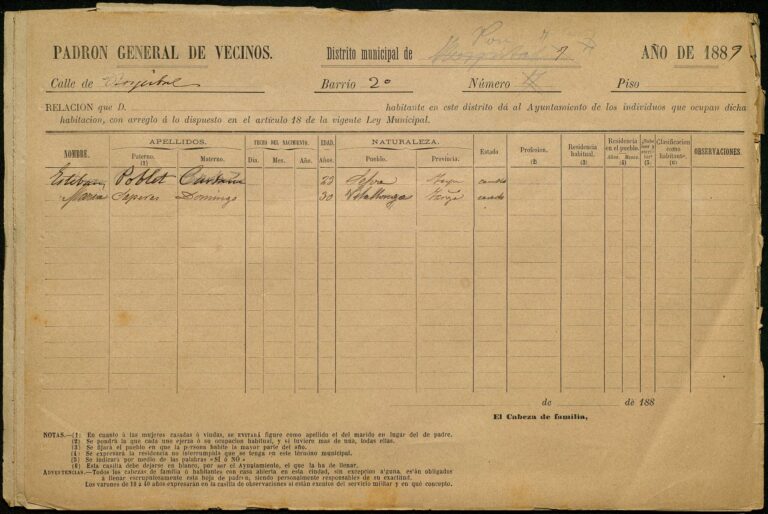 PADRON GENERAL DE VECINOS. Distrito municipal de AÑO DE 1889
Calle de Hospital Barrio 2º Número Piso
RELACION que D. habitante en este distrito dá al Ayuntamiento de los individuos que ocupan dicha
habitacion, con arreglo á lo dispuesto en el artículo 18 de la vigente Ley Municipal.
NOMBRE. APELLIDOS. FECHA DEL NACIMIENTO. EDAD. NATURALEZA. Estado Profesion. Residencia habitual. Residencia en el pueblo. Clasificacion como habitante OBSERVACIONES.
Paterno. Materno. Dia. Mes. Año. Años. Pueblo. Provincia. (2) (3) Años. Meses. (4) (5) (6)
Esteban Poblet 23 Selva
Maria Domingo 30 Vilallonga
de de 188
El Cabeza de familia,
NOTAS.—(1) En cuanto á las mujeres casadas ó viudas, se figure como apellido el del marido en lugar del de padre.
(2) Se pondrá la que cada uno ejerza ó su ocupacion habitual, y si tuviere mas de una, todas ellas.
(3) Se fijará el pueblo en que la persona habite la mayor parte del año.
(4) Se expresará la residencia no interrumpida que se tenga en este término municipal.
(5) Se indicará por medio de las palabras «SI ó NO»
(6) Esta casilla debe dejarse en blanco, por ser el Ayuntamiento, el que la ha de llenar.
ADVERTENCIAS.—Todos los cabezas de familia ó habitantes con casa abierta en esta ciudad, sin excepcion alguna, están obligados
á llenar escrupulosamente esta hoja de padron, siendo personalmente responsables de su exactitud.
Los varones de 18 á 40 años expresarán en la casilla de observaciones si están exentos del servicio militar y en qué concepto.